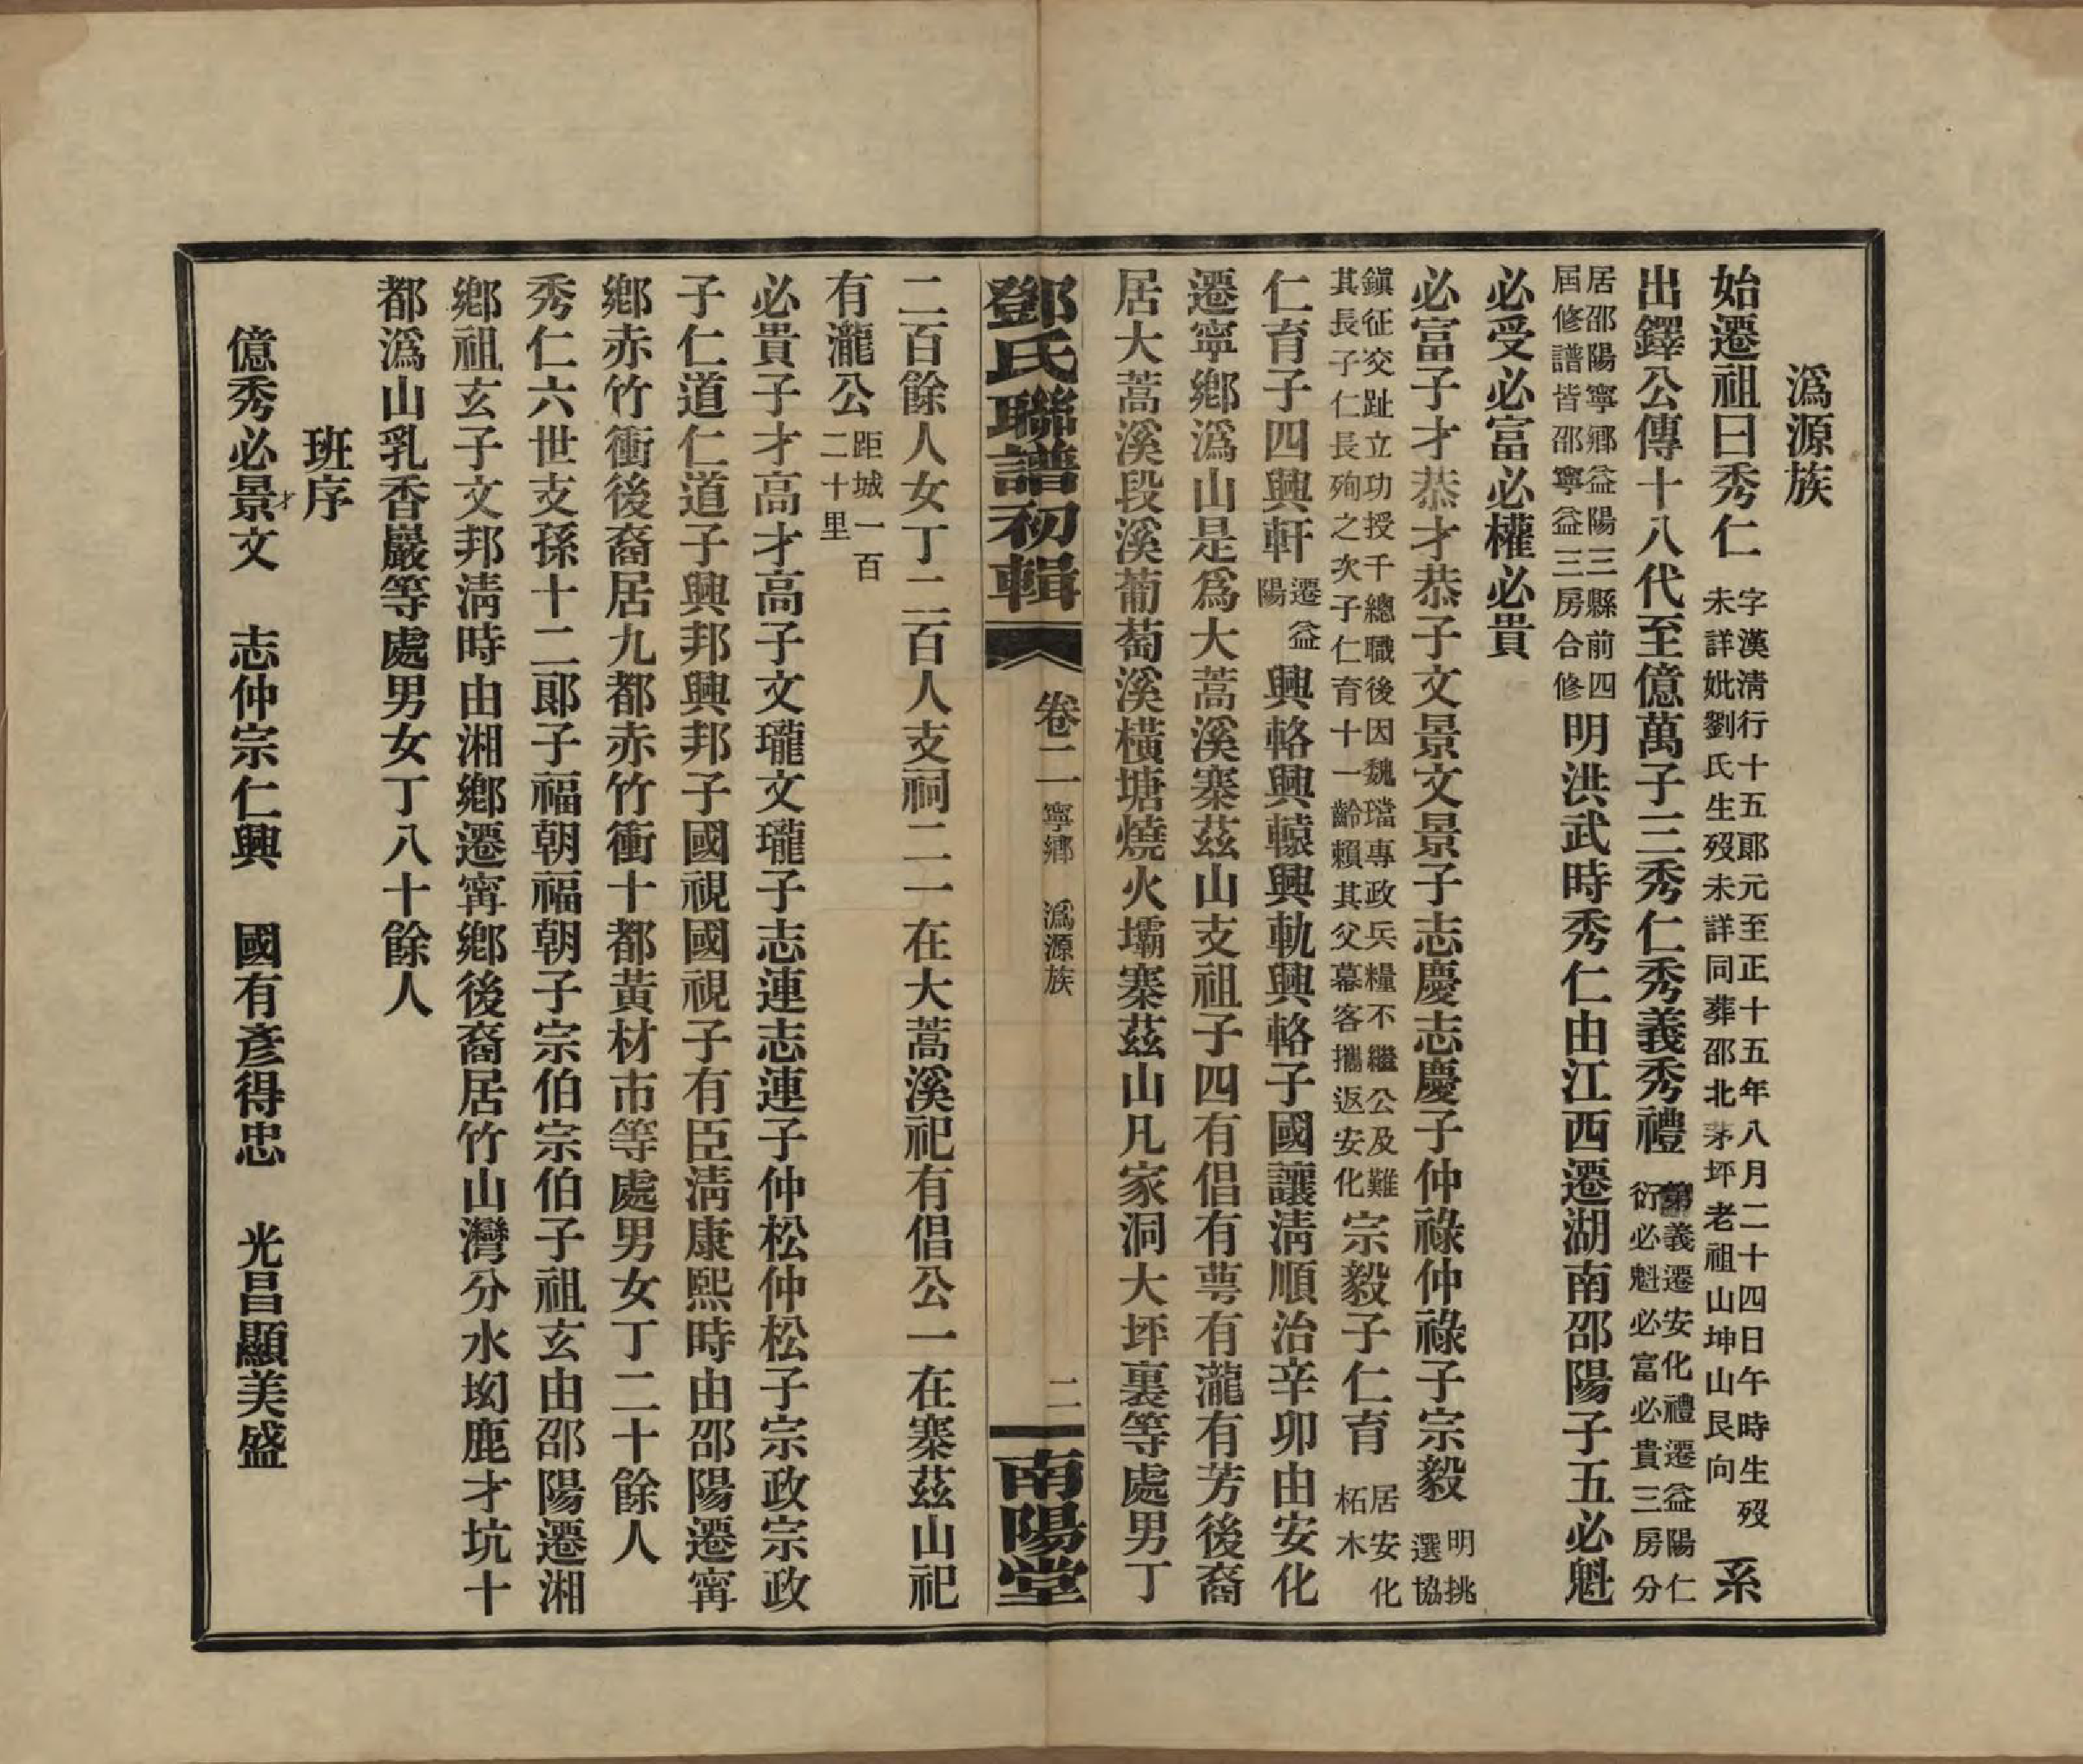 潙源族
始遷祖曰秀仁 字漢淸行十五郞元至正十五年八月二十四日午時生歿 未詳妣劉氏生歿未詳同葬邵北茅坪老祖山坤山艮向 系
出鐸公傳十八代至億萬子三秀仁秀義秀禮 義遷安化禮遷益陽仁 衍必魁必富必貴三房分
居邵陽寧鄉益陽三縣前四 屆修譜皆邵寧益三房合修 明洪武時秀仁由江西遷湖南邵陽子五必魁
必受必富必權必貴
必富子才恭才恭子文景文景子志慶志慶子仲祿仲祿子宗毅 明挑 選協
鎭征交趾立功授千總職後因魏璫專政兵糧不繼公及難 其長子仁長殉之次子仁育十一齡賴其父幕客攜返安化 宗毅子仁育 居安化 柘木
仁育子四興軒 遷益 陽 興輅興轅興軌興輅子國讓淸順治辛卯由安化
遷寧鄉潙山是爲大蒿溪寨茲山支祖子四有倡有萼有瀧有芳後裔
居大蒿溪段溪葡萄溪橫塘燒火壩寨茲山凡家洞大坪裏等處男丁
鄧氏聯譜初輯 卷二 寧鄉 潙源族 二 南陽堂
二百餘人女丁二百人支祠二一在大蒿溪祀有倡公一在寨茲山祀
有瀧公 距城一百 二十里
必貴子才高才高子文瓏文瓏子志連志連子仲松仲松子宗政宗政
子仁道仁道子興邦興邦子國視國視子有臣淸康熙時由邵陽遷甯
鄉赤竹衝後裔居九都赤竹衝十都黃材市等處男女丁二十餘人
秀仁六世支孫十二郞子福朝福朝子宗伯宗伯子祖玄由邵陽遷湘
鄉祖玄子文邦淸時由湘鄉遷甯鄉後裔居竹山灣分水坳鹿才坑十
都潙山乳香巖等處男女丁八十餘人
班序
億秀必景文 志仲宗仁興 國有彥得忠 光昌顯美盛
才